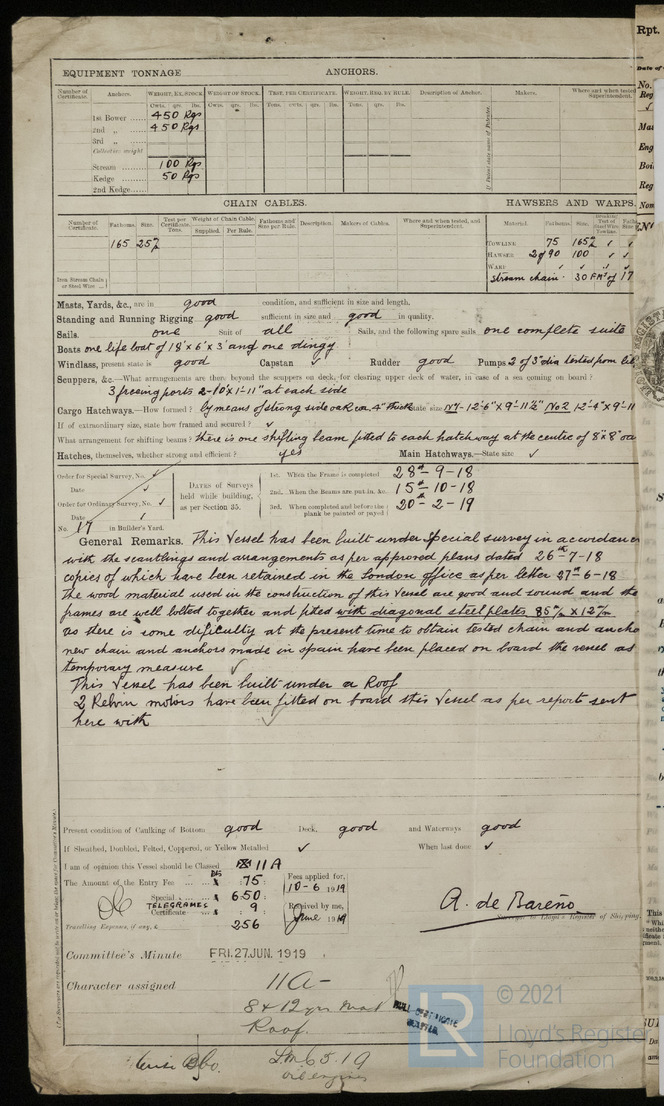 EQUIPMENT TONNAGE ANCHORS.
Number of Certificate. Anchors. WEIGHT, EX. STOCK. WEIGHT OF STOCK. TEST, PER CERTIFICATE. WEIGHT, REQ. BY RULE. Description of Anchor. Makers. Where and when tested Superintendent.
Cwts. qrs. lbs. Cwts. qrs. lbs. Tons. cwts. qrs. lbs. Tons. qrs. lbs.
1st Bower ...... 450 Kgs
2nd „ ...... 450 Kgs
3rd „ ......
Collective weight
Stream ......... 100 Kgs
Kedge ......... 50 Kgs
2nd Kedge......
CHAIN CABLES. HAWSERS AND WARPS.
Number of Certificate. Fathoms. Size. Test per Certificate. Tons. Weight of Chain Cable. Supplied. Per Rule. Fathoms and Size per Rule. Description. Makers of Cables. Where and when tested, and Superintendent. Material. Fathoms. Size.
165 25
TOWLINE 75 165
HAWSER 2 of 90 100
WARP
Iron Stream Chain or Steel Wire ...
Stream chain 30 of 17
Masts, Yards, &c., are in good condition, and sufficient in size and length.
Standing and Running Rigging good sufficient in size and good in quality.
Sails. one Suit of all Sails, and the following spare sails one complete suite
Boats one life boat of 18' x 6' x 3' and one dingy
Windlass, present state is good Capstan ✓ Rudder good Pumps 2 of 3" dia tested from
Scuppers, &c.—What arrangements are there beyond the scuppers on deck, for clearing upper deck of water, in case of a sea coming on board?
3 freeing ports 2-10" x 1-11" at each side
Cargo Hatchways.—How formed? by means of strong side oak 4" thick state size No 1 - 12'-6" x 9'-11½" No 2 12'-4" x 9'-11
If of extraordinary size, state how framed and secured? ✓
What arrangement for shifting beams? there is one shifting beam fitted to each hatchway at the centre of 8" x 8"
Hatches, themselves, whether strong and efficient? yes Main Hatchways.—State size ✓
Order for Special Survey, No.
Date
Order for Ordinary Survey, No.
Date
No. 17 in Builder's Yard.
DATES of Surveys held while building, as per Section 35.
1st. When the Frame is completed 28th - 9 - 18
2nd. When the Beams are put in, &c. 15th - 10 - 18
3rd. When completed and before the plank be painted or payed 20th - 2 - 19
General Remarks. This Vessel has been built under Special survey in accordance
with the scantlings and arrangements as per approved plans dated 26th - 7 - 18
copies of which have been retained in the London office as per letter 27th - 6 - 18
The wood material used in the construction of this Vessel are good and sound and the
frames are well bolted together and fited with diagonal steel plates 85 m/m x 12 m/m
As there is some dificulty at the present time to obtain tested chain and
new chain and anchors made in spain have been placed on board the vessel as
temporary measure ✓
This Vessel has been built under a Roof
2 Kelvin motors have been fitted on board this Vessel as per reports sent
here with ✓
Present condition of Caulking of Bottom good Deck, good and Waterways good
If Sheathed, Doubled, Felted, Coppered, or Yellow Metalled ✓ When last done ✓
I am of opinion this Vessel should be Classed 11 A
The Amount of the Entry Fee ... 75 : Fees applied for, 10-6 1919
Special ... 650 :
TELEGRAMES 9 : Received by me, June 1919
Certificate
Travelling Expenses, if any, £ 256
A. de Bareño
Surveyor to Lloyd's Register of Shipping.
Committee's Minute FRI. 27 JUN. 1919
Character assigned 11A -
8 & 12 yrs mat
Roof.
L.M.C. 5.19
oil engines
© 2021
Lloyd's Register
Foundation
Rpt.